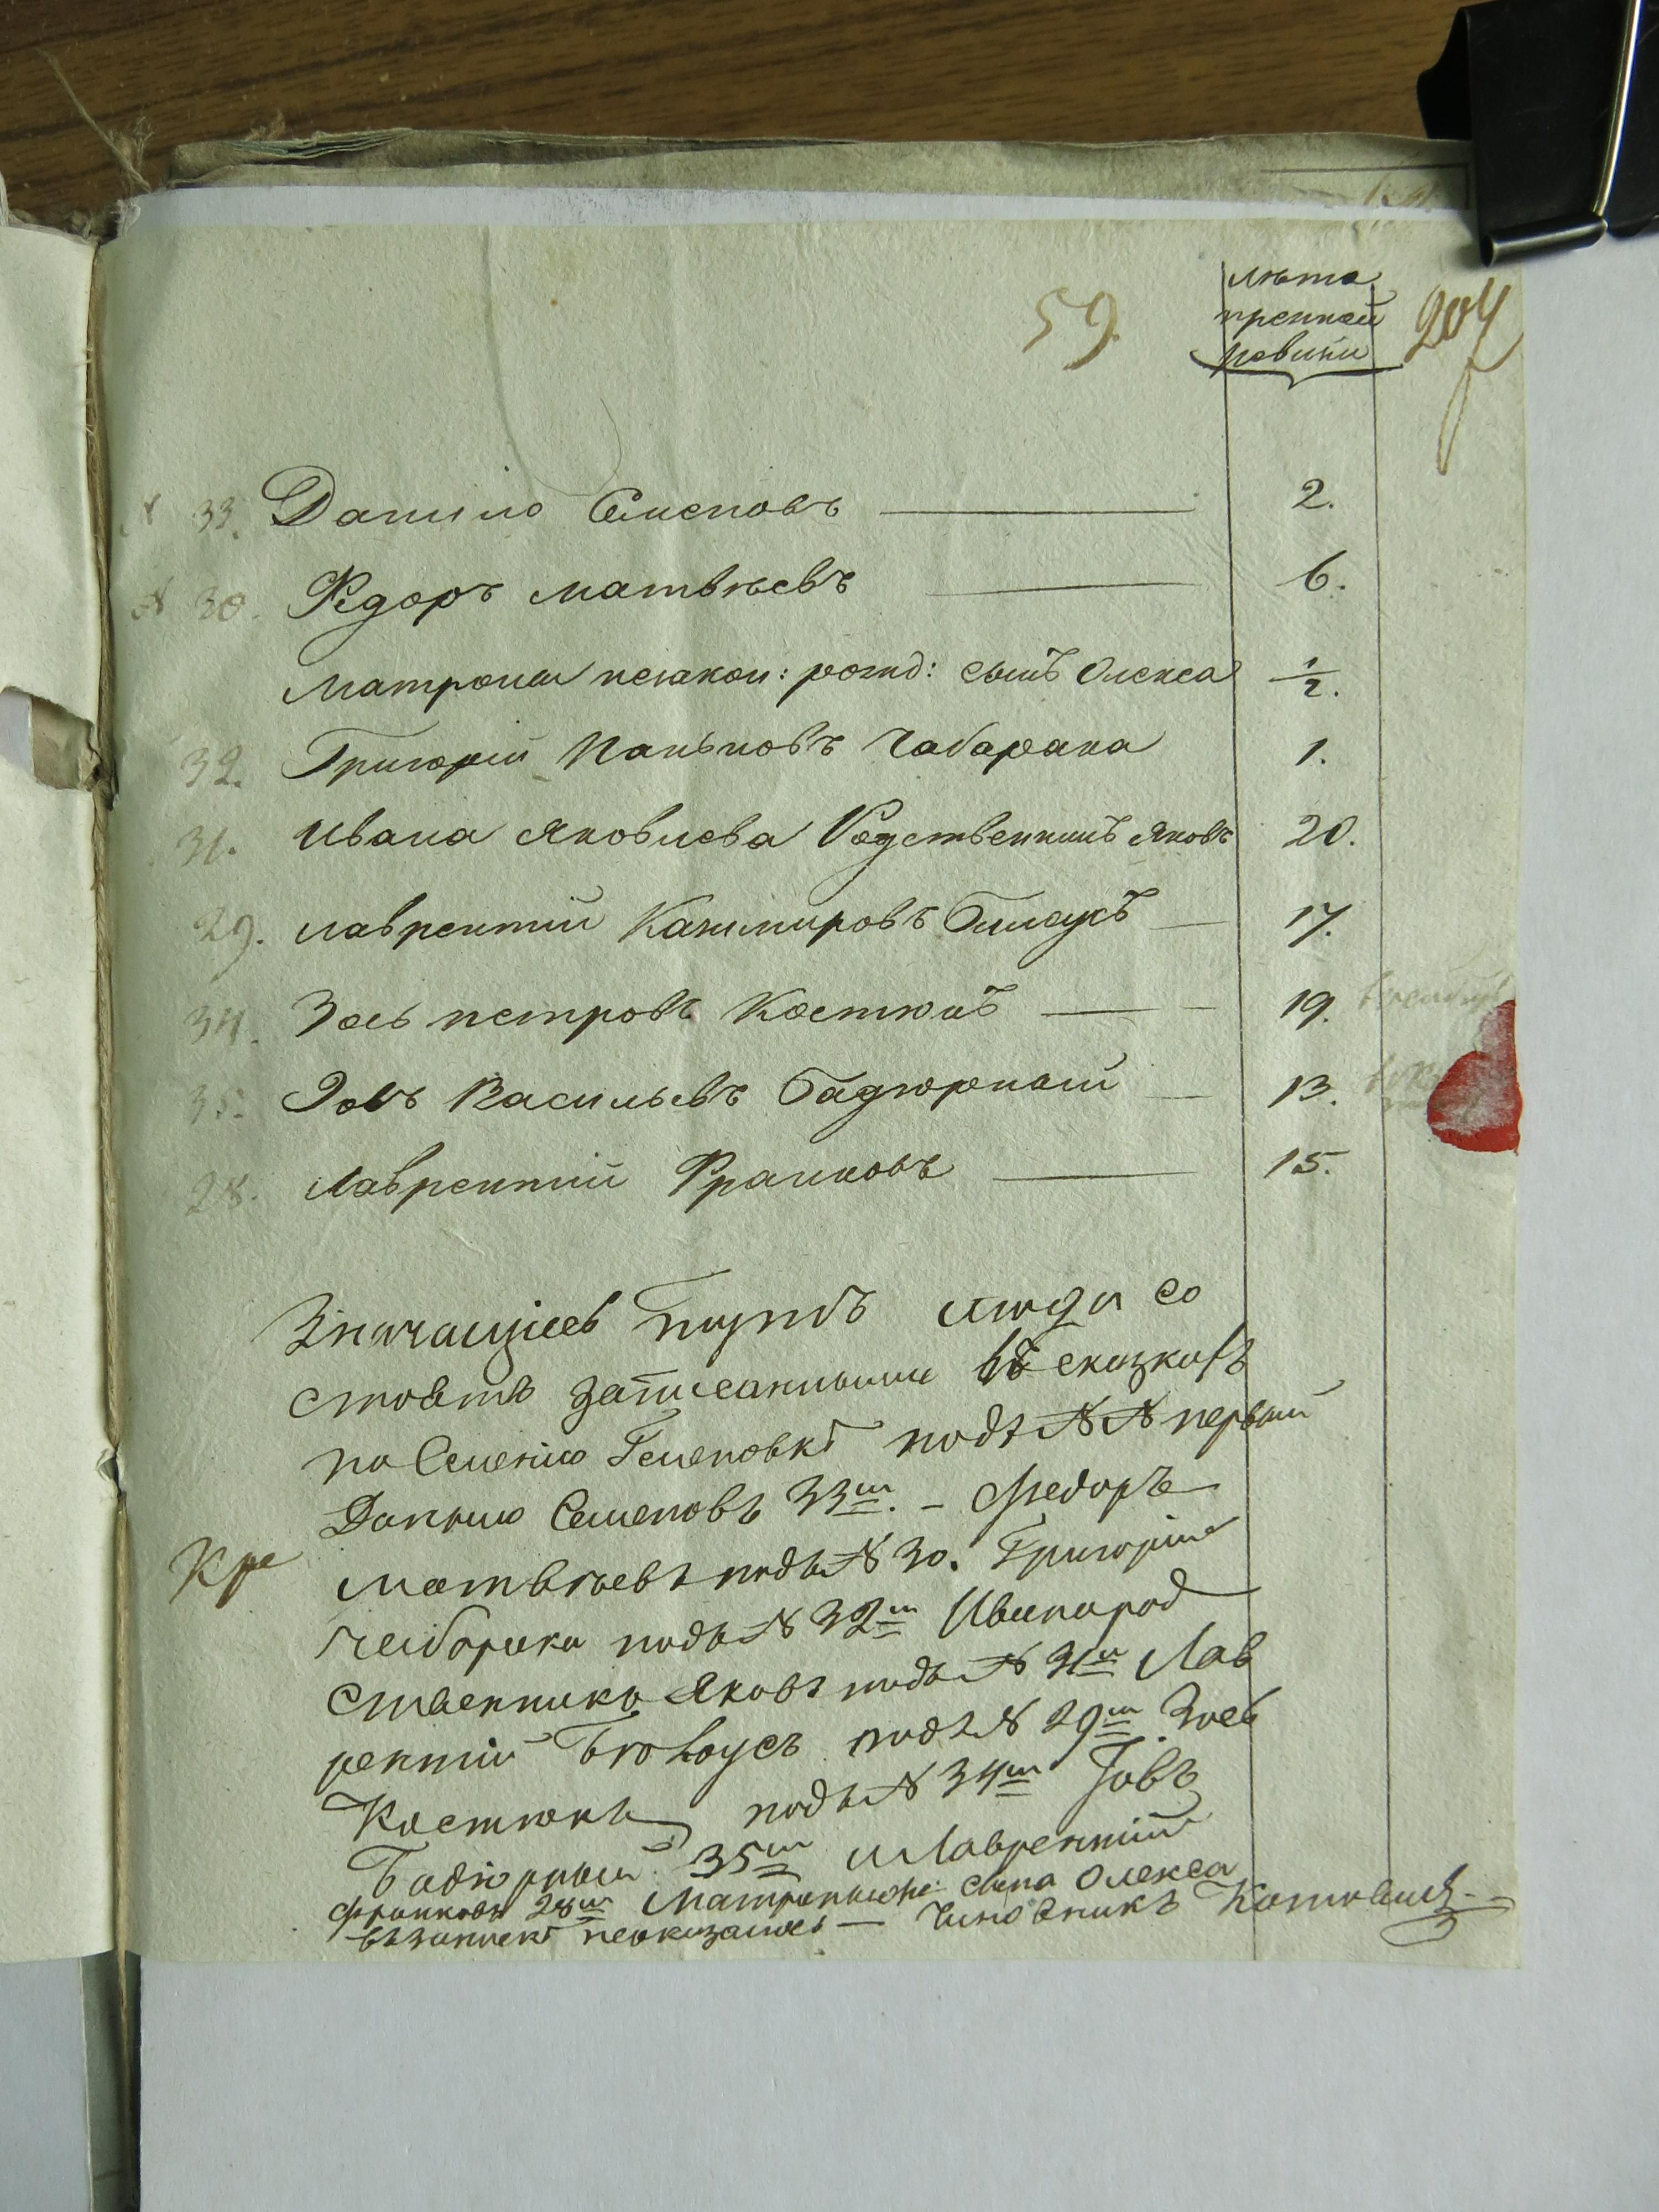 59.
лѣта
прежней
ревизіи
204
№ 33. Данило Семеновъ 2.
№ 30. Ѳедоръ Матвѣевъ 6.
Матроны незакон: рожд: сынъ Олекса 1/2.
32. Григорій Паньковъ Чабарака 1.
31. Ивана Яковлева Родственникъ Яковъ 20.
29. Лаврентій Казимировъ Билаусъ 17.
34. Зось Петровъ Костюкъ 19.
35. Іовъ Васильевъ Бадюрный 13.
28. Лаврентій Франковъ 15.
Значащіеся тутъ люди со
стоятъ записанными въ сказкахъ
по Селенію Семеновкѣ подъ №№ первый
Данило Семеновъ 33м. – Федоръ
Кре
Матвѣевъ подъ № 30. Григорій
Чабарака подъ № 32м Ивана род
ственникъ Яковъ подъ № 31м Лав
рентій Бѣлоусъ подъ № 29м Зось
Костюкъ подъ № 34м Іовъ
Бадюрный 35м и Лаврентій
Франковъ 28м Матроны же сына Олекса
въ запискѣ неоказалось — Чиновникъ